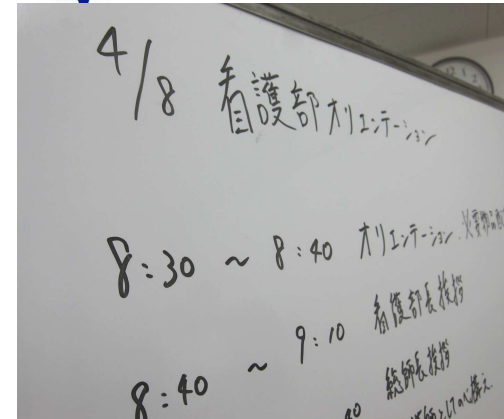 4/8 看護部オリエンテーション
8:30 ~ 8:40 オリエンテーション、必要物品
8:40 ~ 9:10 看護部長挨拶
総師長挨拶
40